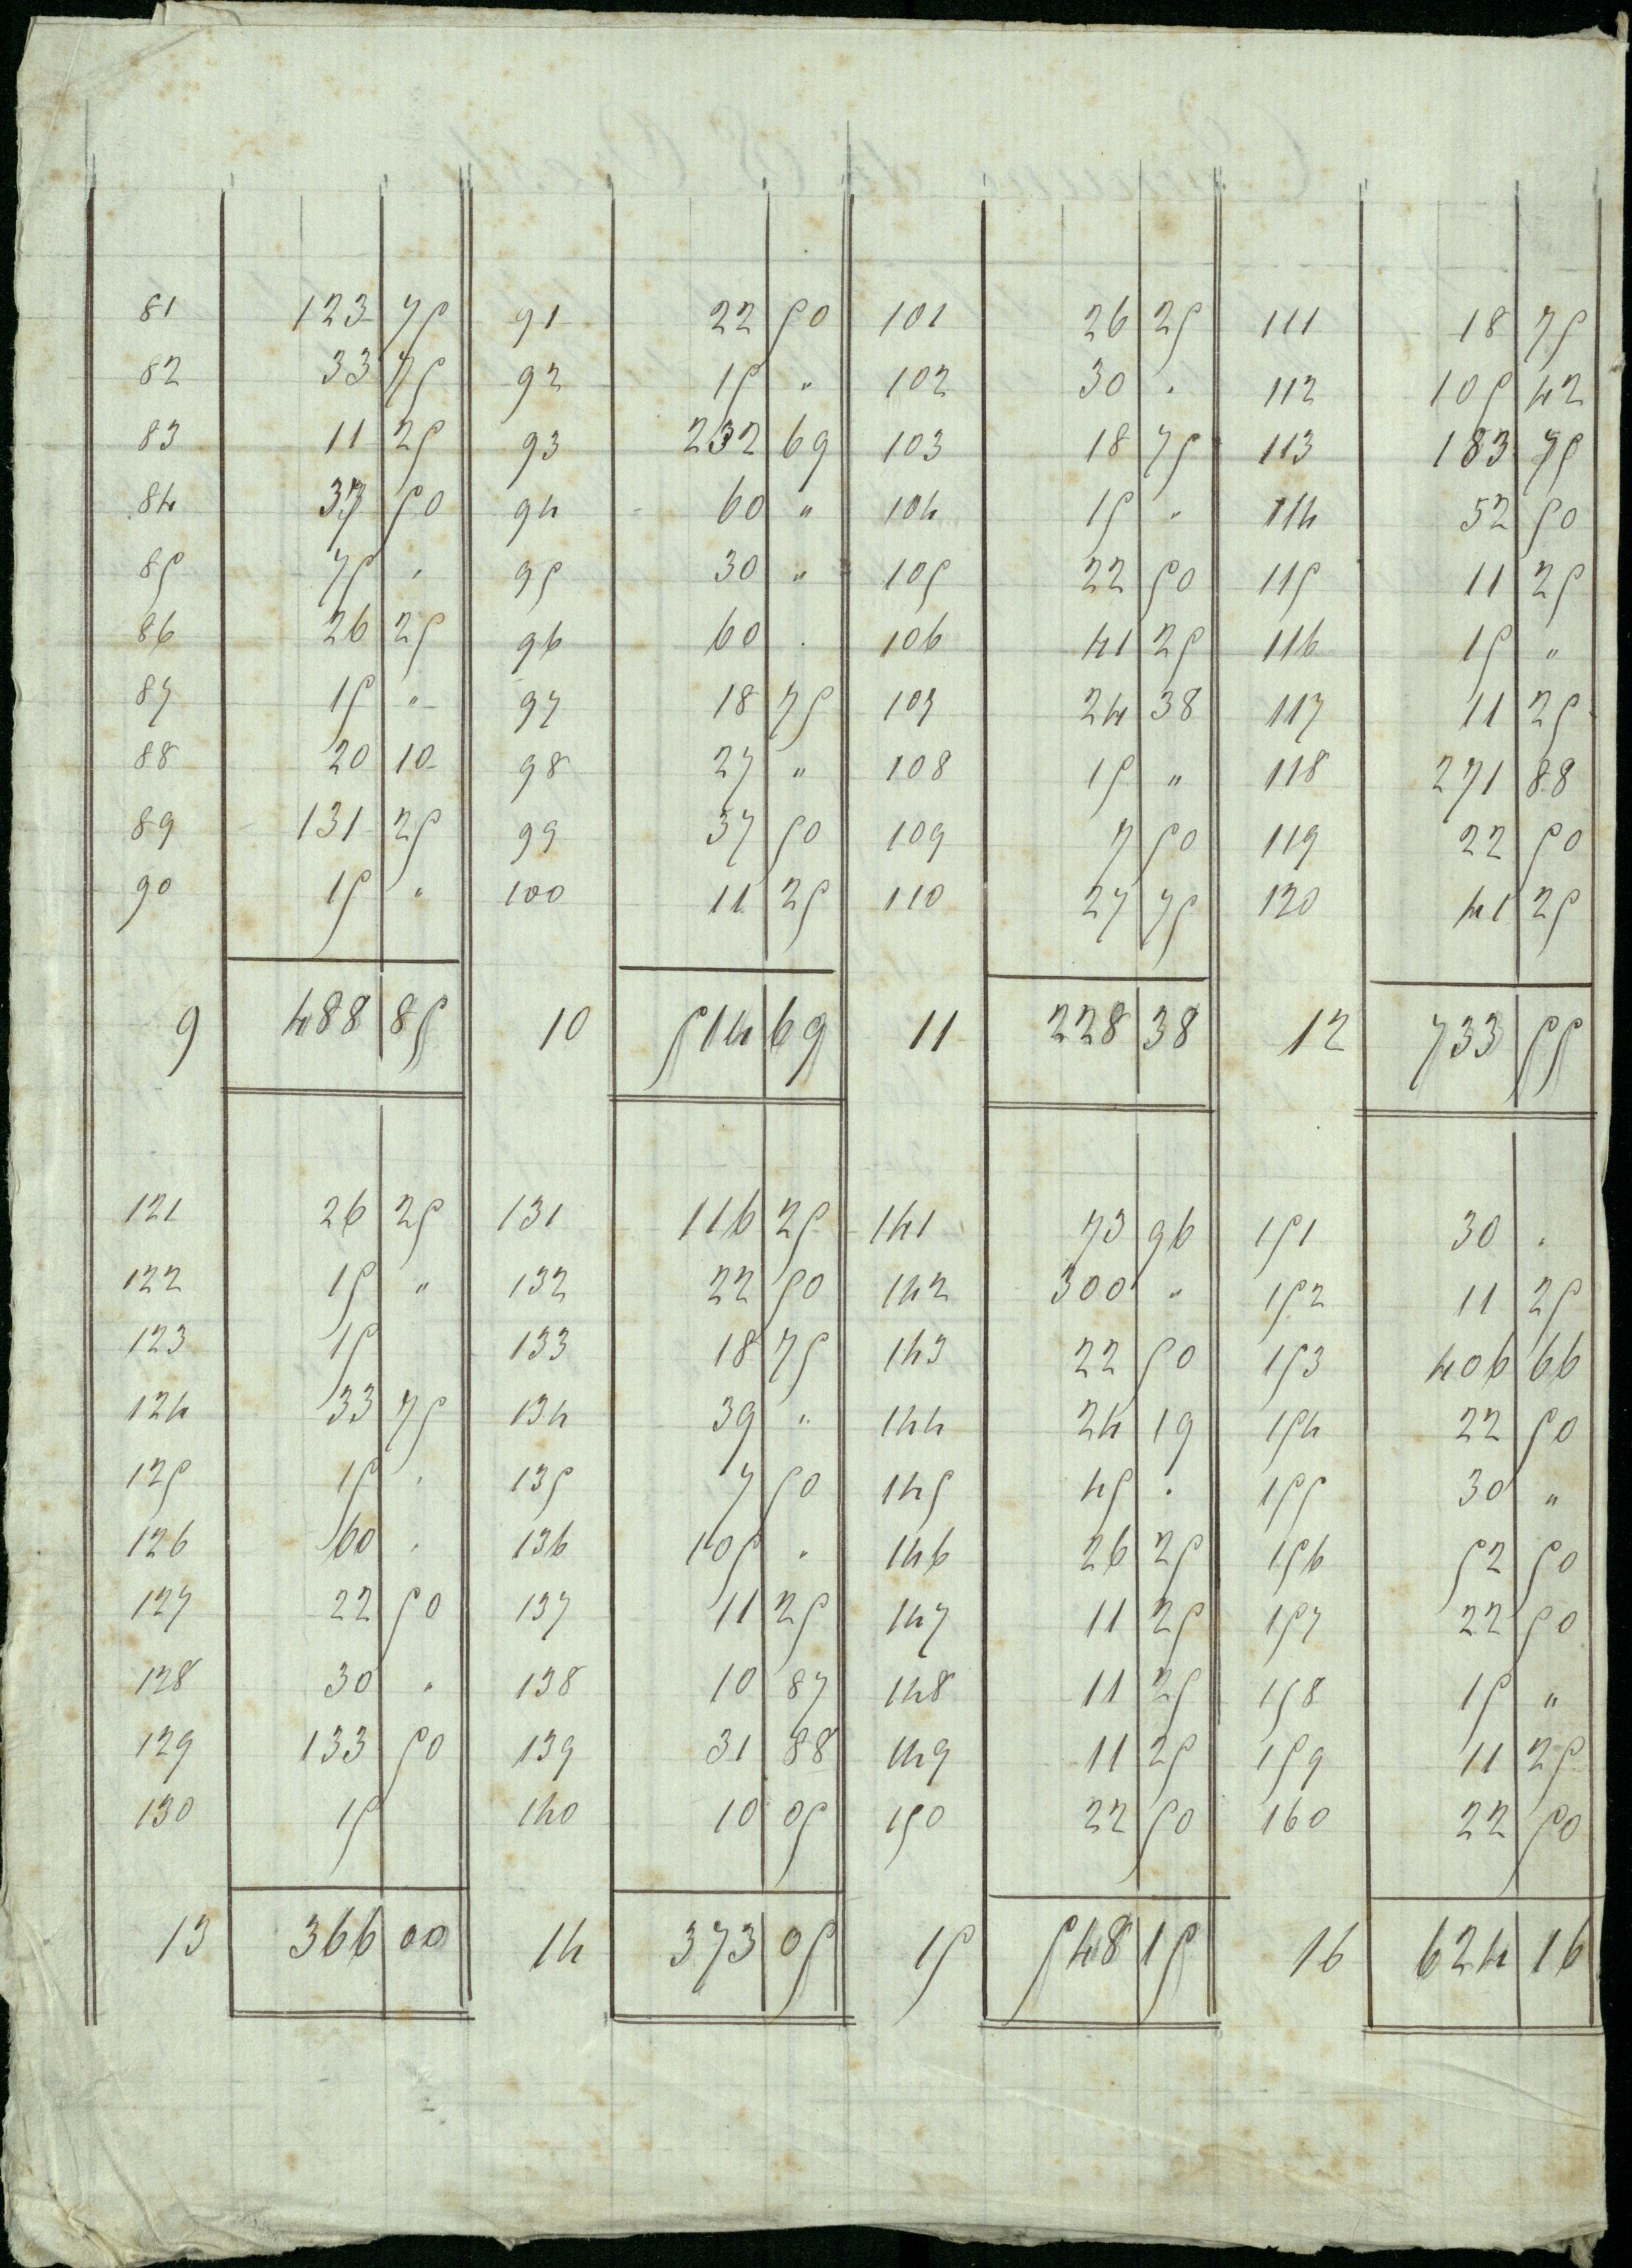 81 123 75 91 22 50 101 26 25 111 18 75
82 33 75 92 15 " 102 30 . 112 105 42
83 11 25 93 232 69 103 18 75 113 183 75
84 37 50 94 60 " 104 15 " 114 52 50
85 75 . 95 30 " 105 22 50 115 11 25
86 26 25 96 60 . 106 41 25 116 15 "
87 15 " 97 18 75 107 24 38 117 11 25
88 20 10 98 27 " 108 15 " 118 271 88
89 131 25 99 37 50 109 7 50 119 22 50
90 15 " 100 11 25 110 27 75 120 41 25
9 488 85 10 514 69 11 228 38 12 733 55
121 26 25 131 116 25 141 73 96 151 30 .
122 15 " 132 22 50 142 300 " 152 11 25
123 15 133 18 75 143 22 50 153 406 66
124 33 75 134 39 " 144 24 19 154 22 50
125 15 . 135 7 50 145 45 . 155 30 "
126 60 . 136 105 . 146 26 25 156 52 50
127 22 50 137 11 25 147 11 25 157 22 50
128 30 " 138 10 87 148 11 25 158 15 "
129 133 50 139 31 88 149 11 25 159 11 25
130 15 140 10 05 150 22 50 160 22 50
13 366 00 14 373 05 15 548 15 16 624 16